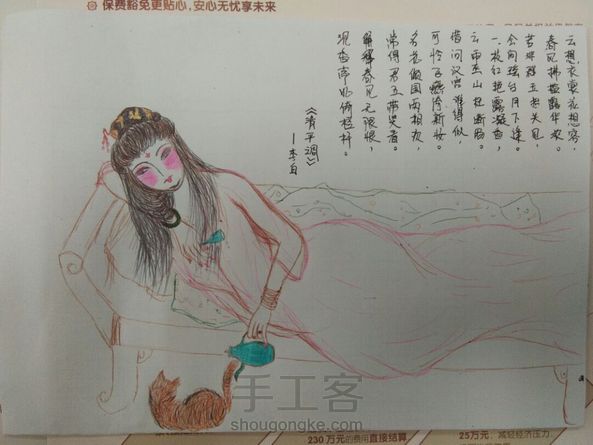 保费豁免更贴心,安心无忧享未来
云想衣裳花想容,
春风拂槛露华浓。
若非群玉山头见,
会向瑶台月下逢。
一枝红艳露凝香,
云雨巫山枉断肠。
借问汉宫谁得似,
可怜飞燕倚新妆。
名花倾国两相欢,
常得君王带笑看。
解释春风无限恨,
沉香亭北倚栏杆。
《清平调》
—李白
手工客
shougongke.com
230 万元的费用直接结算
25万元,减轻经济压力